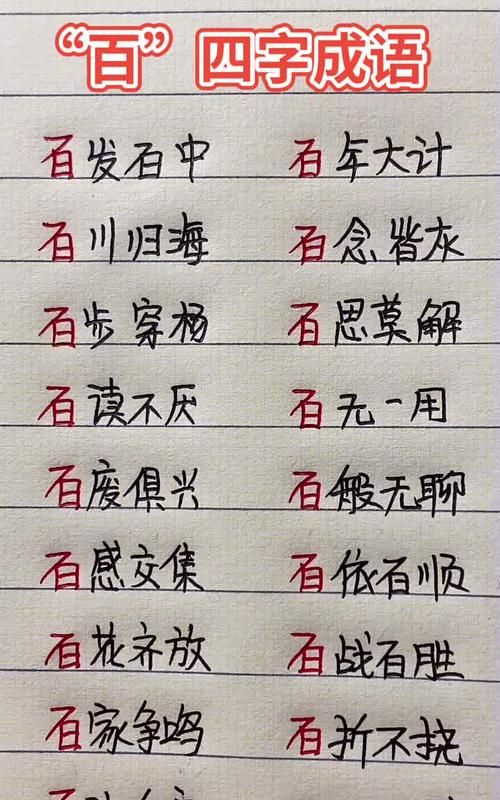 “百”四字成语
百发百中 百年大计
百川归海 百念皆灰
百步穿杨 百思莫解
百读不厌 百无一用
百废俱兴 百般无聊
百感交集 百依百顺
百花齐放 百战百胜
百家争鸣 百折不挠